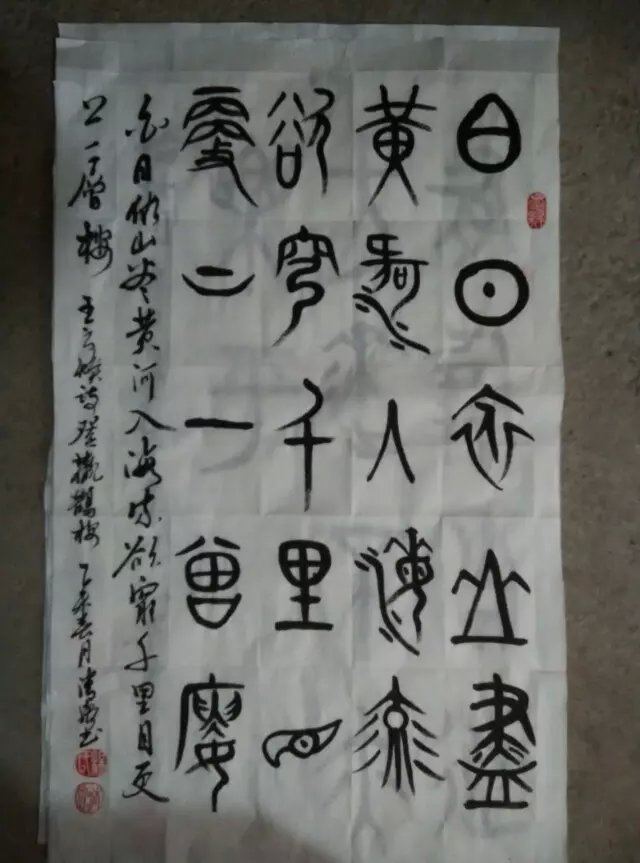 白日依山盡
黃河入海流
欲窮千里目
更上一曾樓
白日依山尽黄河入海流欲窮千里目更
上一層樓 王之涣詩登鸛鵲樓 乙未春月